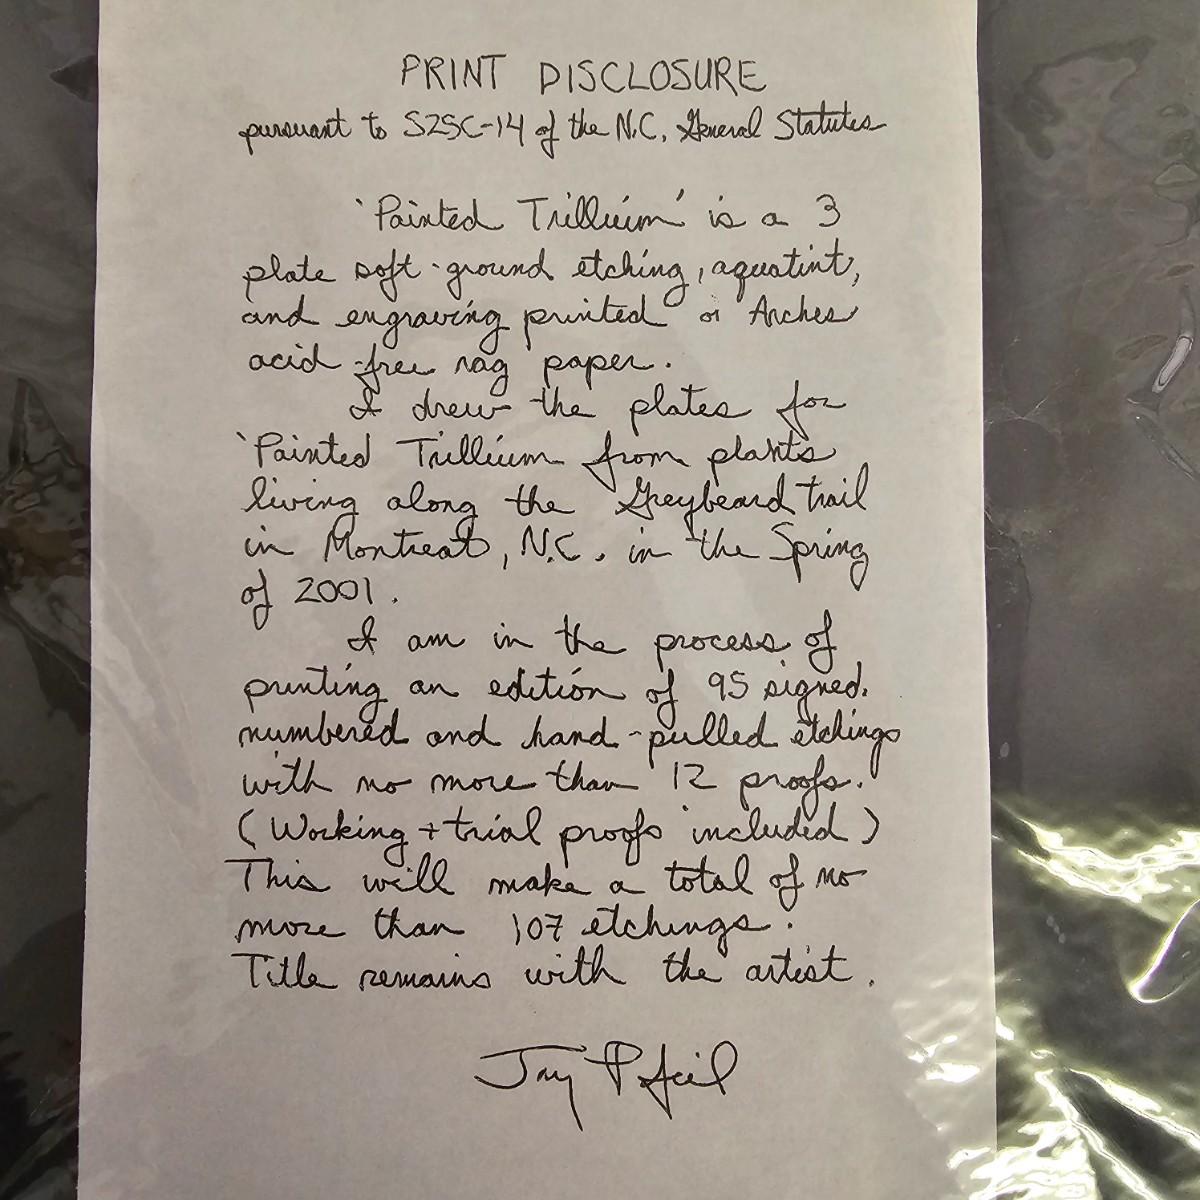 PRINT DISCLOSURE
pursuant to S25C-14 of the N.C. General Statutes
'Painted Trillium' is a 3
plate soft-ground etching, aquatint,
and engraving printed on Arches
acid-free rag paper.
I drew the plates for
'Painted Trillium from plants
living along the Greybeard trail
in Montreat, N.C. in the Spring
of 2001.
I am in the process of
printing an edition of 95 signed,
numbered and hand-pulled etchings
with no more than 12 proofs.
(Working + trial proofs included)
This will make a total of no
more than 107 etchings.
Title remains with the artist.
Jay Pfeil